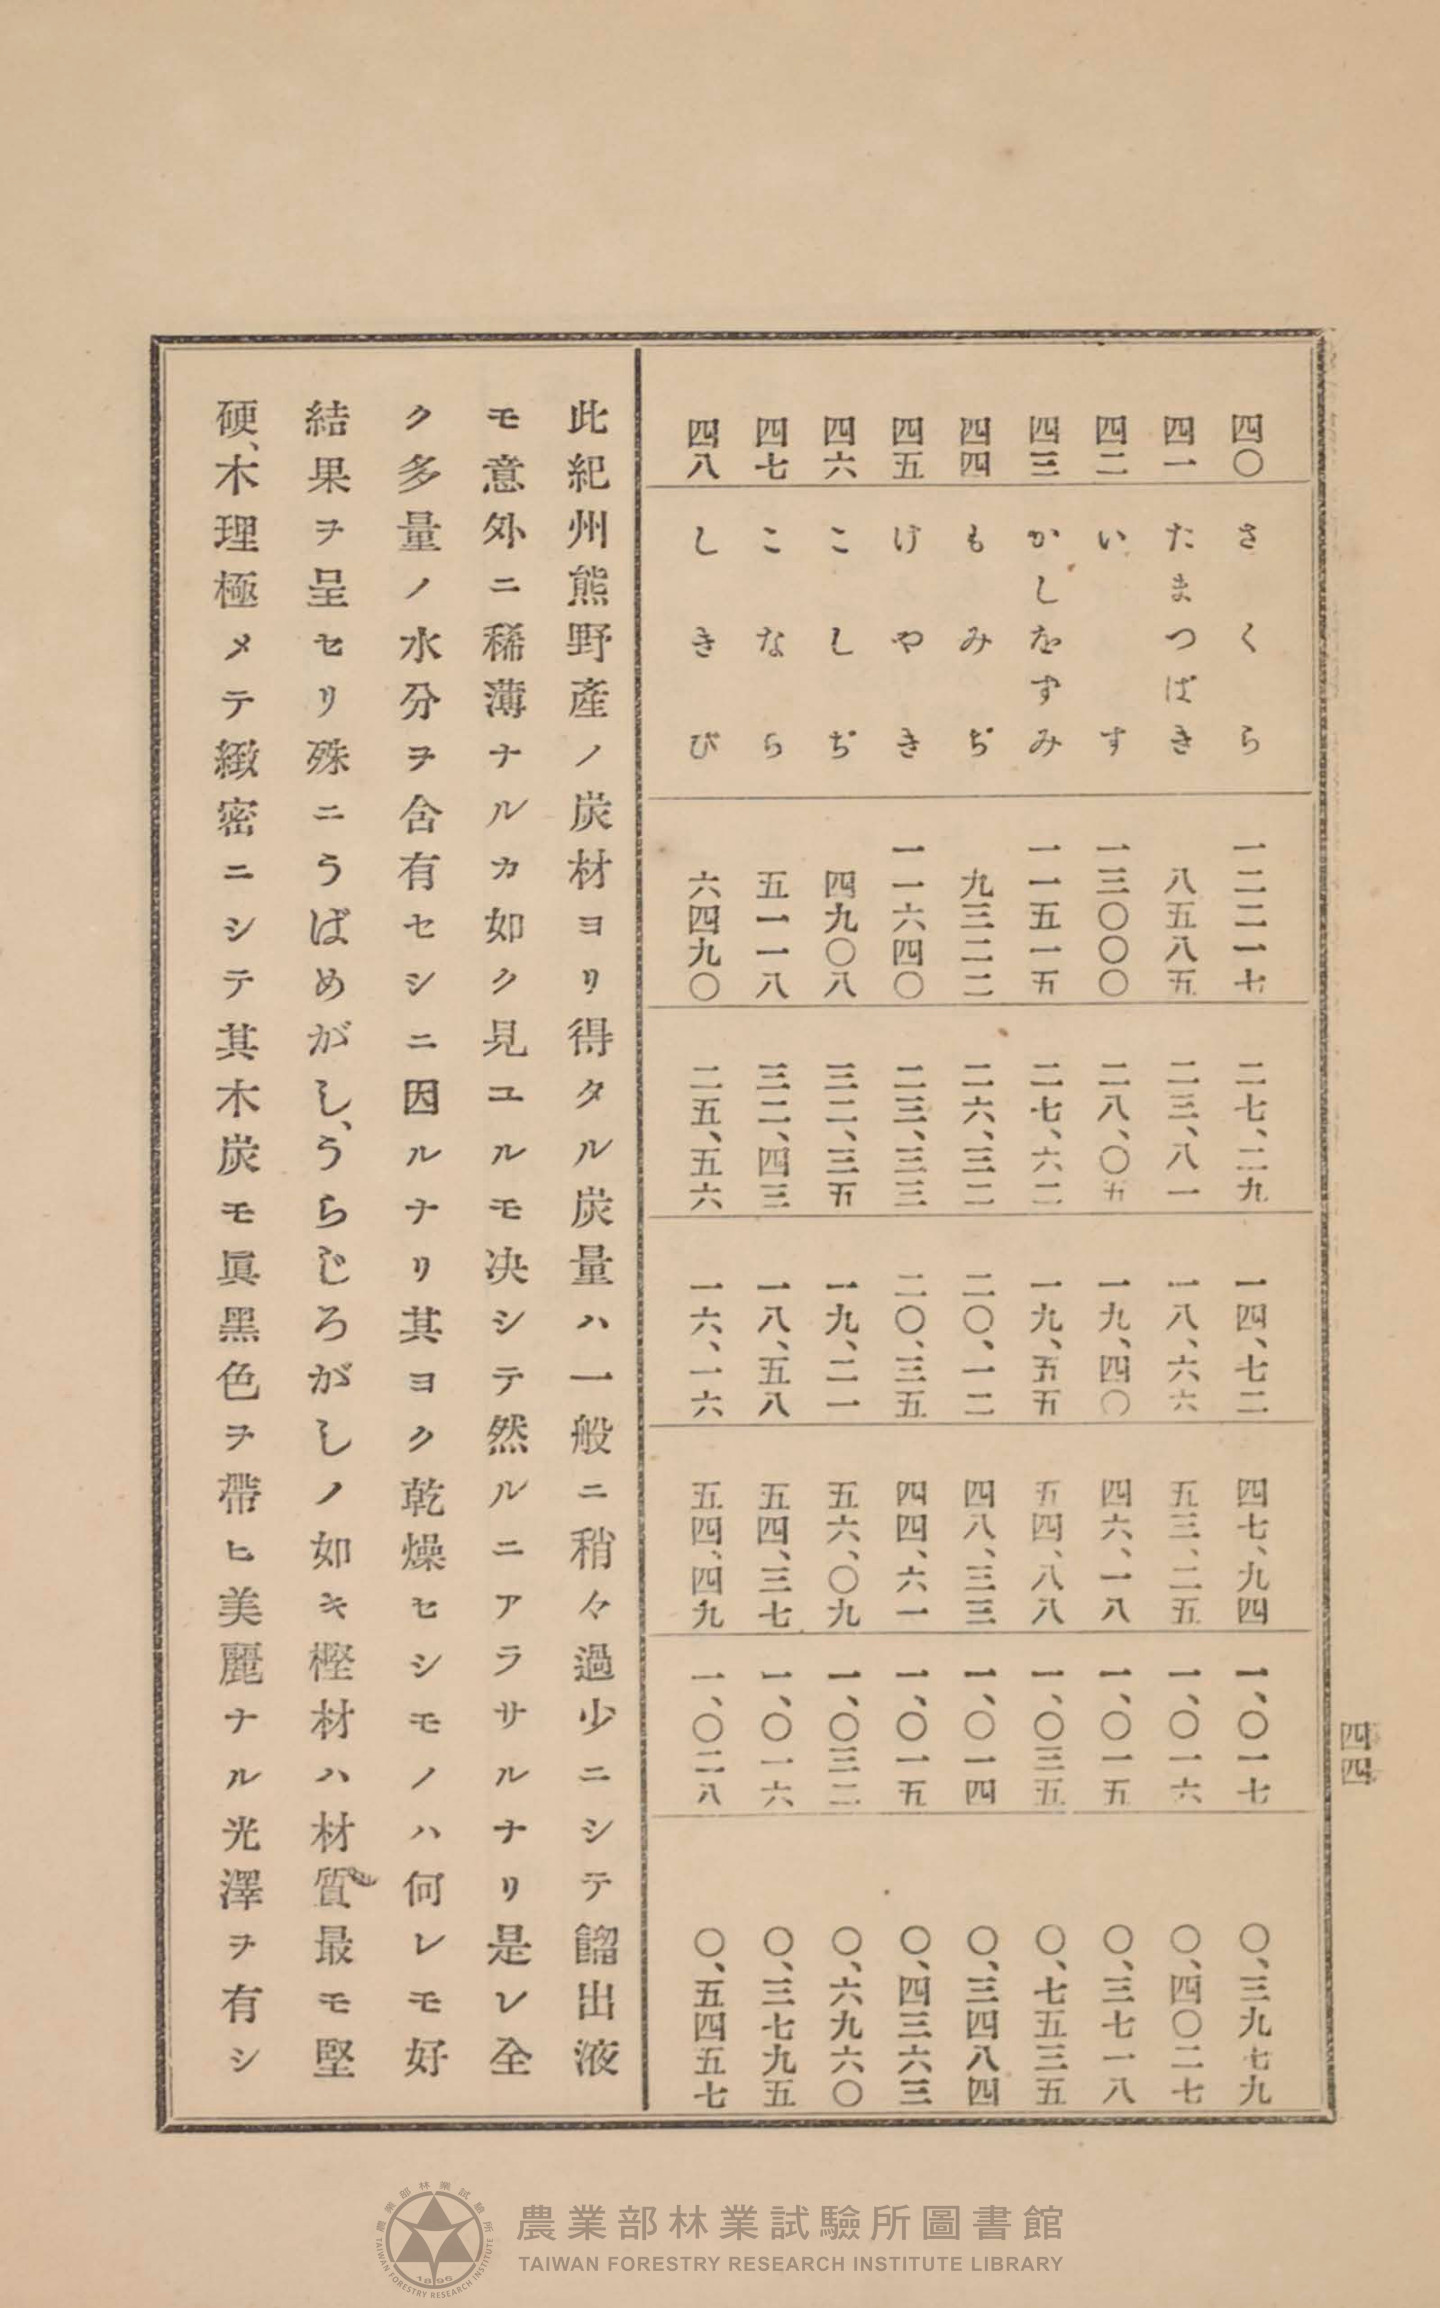 四〇 さくら 一二二一七 二七、二九 一四、七二 四七、九四 一、〇一七 〇、三九七九
四一 たまつばき 八五八五 二三、八一 一八、六六 五三、二五 一、〇一六 〇、四〇二七
四二 いす 一三〇〇〇 二八、〇五 一九、四〇 四六、一八 一、〇一五 〇、三七一八
四三 かしをずみ 一一五一五 二七、六二 一九、五五 五四、八八 一、〇三五 〇、七五三五
四四 もみぢ 九三二二 二六、三二 二〇、一二 四八、三三 一、〇一四 〇、三四八四
四五 けやき 一一六四〇 二三、三三 二〇、三五 四四、六一 一、〇一五 〇、四三六三
四六 こしぢ 四九〇八 三二、三五 一九、二一 五六、〇九 一、〇三二 〇、六九六〇
四七 こなら 五一一八 三二、四三 一八、五八 五四、三七 一、〇一六 〇、三七九五
四八 しきび 六四九〇 二五、五六 一六、一六 五四、四九 一、〇二八 〇、五四五七
此紀州熊野產ノ炭材ヨリ得タル炭量ハ一般ニ稍々過少ニシテ餾出液
モ意外ニ稀薄ナルカ如ク見ユルモ决シテ然ルニアラサルナリ是レ全
ク多量ノ水分ヲ含有セシニ因ルナリ其ヨク乾燥セシモノハ何レモ好
結果ヲ呈セリ殊ニうばめがし、うらじろがしノ如キ樫材ハ材質最モ堅
硬、木理極メテ緻密ニシテ其木炭モ眞黑色ヲ帶ヒ美麗ナル光澤ヲ有シ
四四
農業部林業試驗所圖書館
TAIWAN FORESTRY RESEARCH INSTITUTE LIBRARY
農業部林業試驗所
TAIWAN FORESTRY RESEARCH INSTITUTE
1896